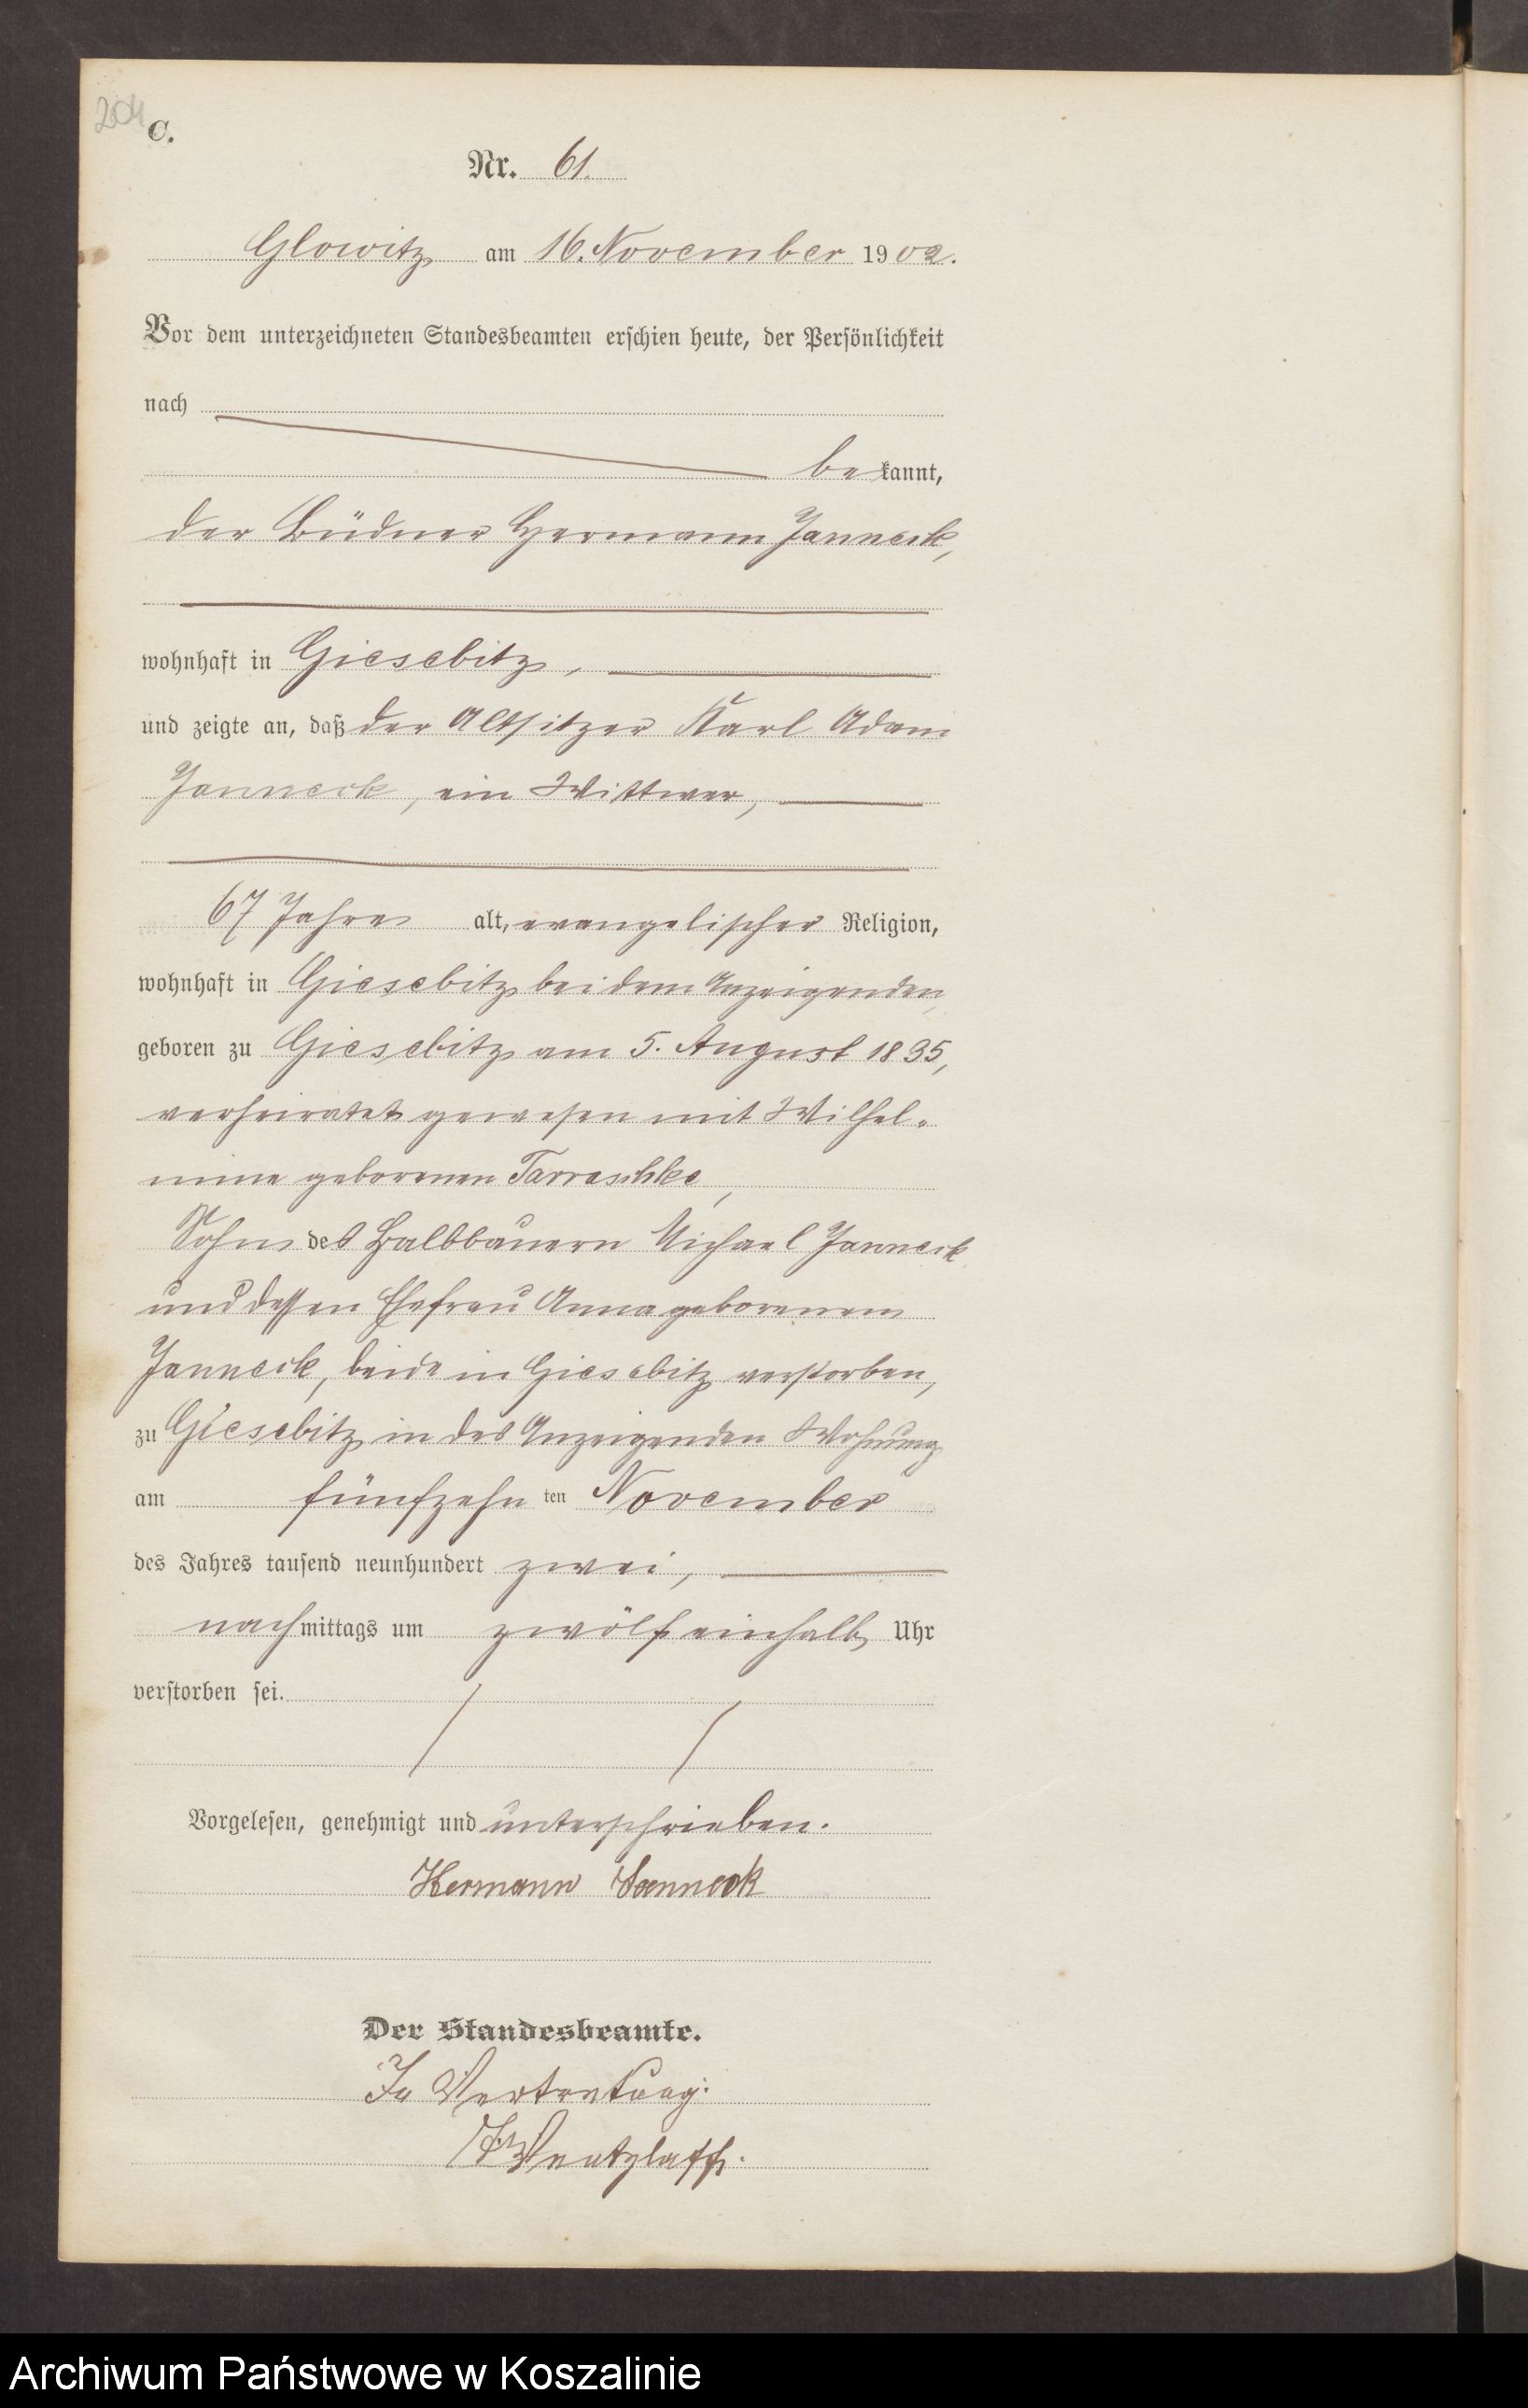 204
C.
Nr. 61.
Glowitz am 16. November 1902.
Vor dem unterzeichneten Standesbeamten erschien heute, der Persönlichkeit
nach
bekannt,
der Büdner Hermann Janneck,
wohnhaft in Giesebitz,
und zeigte an, daß der Altsitzer Karl Adam
Janneck, ein Wittwer,
67 Jahre alt, evangelischer Religion,
wohnhaft in Giesebitz bei dem Anzeigenden,
geboren zu Giesebitz am 5. August 1835,
verheiratet gewesen mit Wilhel-
mine geborenen Tarraschke,
Sohn des Halbbauern Michael Janneck
und dessen Ehefrau Anna geborenen
Janneck, beide in Giesebitz verstorben,
zu Giesebitz in des Anzeigenden Wohnung
am fünfzehnten November
des Jahres tausend neunhundert zwei,
nachmittags um zwölf einhalb Uhr
verstorben sei.
Vorgelesen, genehmigt und unterschrieben.
Hermann Janneck
Der Standesbeamte.
In Vertretung:
Wentzlaff.
Archiwum Państwowe w Koszalinie